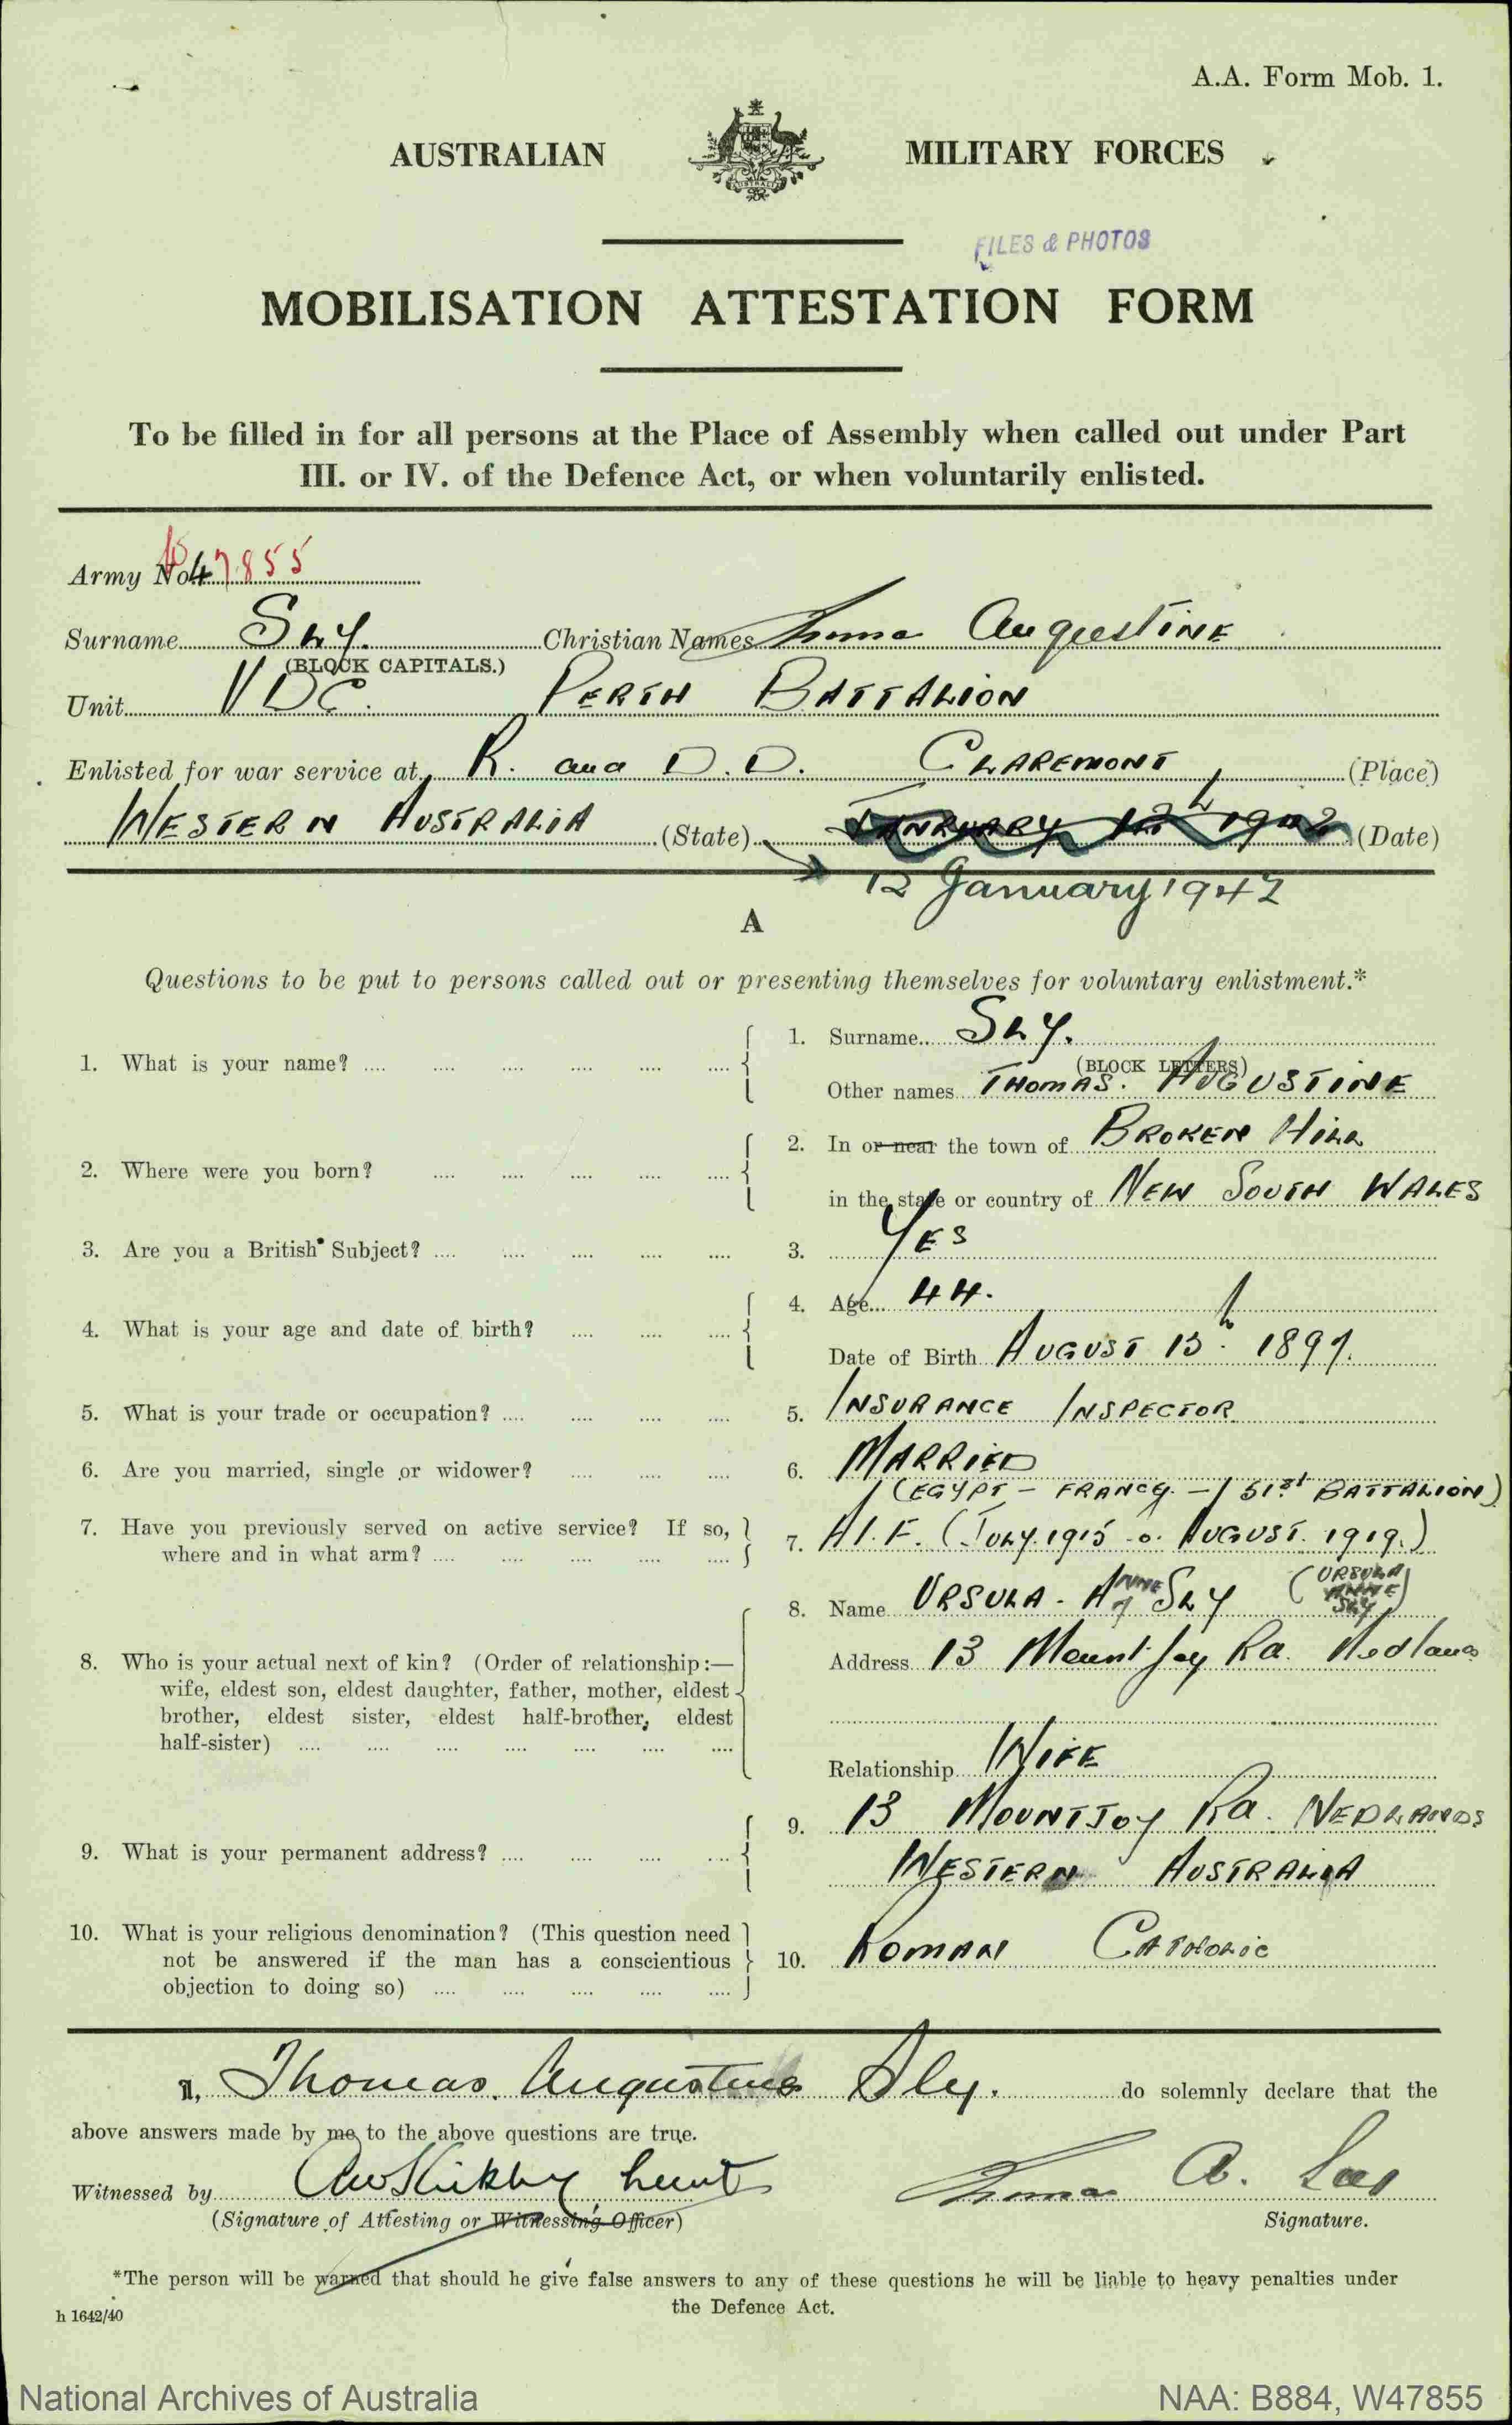 A.A. Form Mob. 1.
AUSTRALIAN MILITARY FORCES
FILES & PHOTOS
MOBILISATION ATTESTATION FORM
To be filled in for all persons at the Place of Assembly when called out under Part
III. or IV. of the Defence Act, or when voluntarily enlisted.
Army No. 47855
Surname SLY. Christian Names Thomas AUGUSTINE
(BLOCK CAPITALS.)
Unit VDC. PERTH BATTALION
Enlisted for war service at R. and D.D. CLAREMONT (Place)
WESTERN AUSTRALIA (State) JANUARY 12th 1942 (Date)
12 January 1942
A
Questions to be put to persons called out or presenting themselves for voluntary enlistment.*
1. What is your name? .... 1. Surname SLY.
(BLOCK LETTERS)
Other names THOMAS. AUGUSTINE
2. Where were you born? 2. In or near the town of BROKEN HILL
in the state or country of NEW SOUTH WALES
3. Are you a British Subject? .... 3. YES
4. What is your age and date of birth? 4. Age 44.
Date of Birth AUGUST 13th 1897.
5. What is your trade or occupation? .... 5. INSURANCE INSPECTOR
6. Are you married, single or widower? 6. MARRIED
(EGYPT - FRANCE. - 51st BATTALION)
7. Have you previously served on active service? If so, where and in what arm? .... 7. A.I.F. (JULY. 1915 to AUGUST. 1919.)
8. Who is your actual next of kin? (Order of relationship:—
wife, eldest son, eldest daughter, father, mother, eldest
brother, eldest sister, eldest half-brother, eldest
half-sister) ....
8. Name URSULA - ANNE SLY (URSULA ANNE SLY)
Address 13 Mountjoy Rd. Nedlands
Relationship WIFE
9. What is your permanent address? .... 9. 13 MOUNTJOY Rd. NEDLANDS
WESTERN AUSTRALIA
10. What is your religious denomination? (This question need
not be answered if the man has a conscientious
objection to doing so) ....
10. ROMAN CATHOLIC
I, Thomas. Augustine Sly. do solemnly declare that the
above answers made by me to the above questions are true.
Witnessed by Kirkby Lieut Thomas A. Sly
(Signature of Attesting or Witnessing Officer) Signature.
*The person will be warned that should he give false answers to any of these questions he will be liable to heavy penalties under
the Defence Act.
h 1642/40
National Archives of Australia NAA: B884, W47855